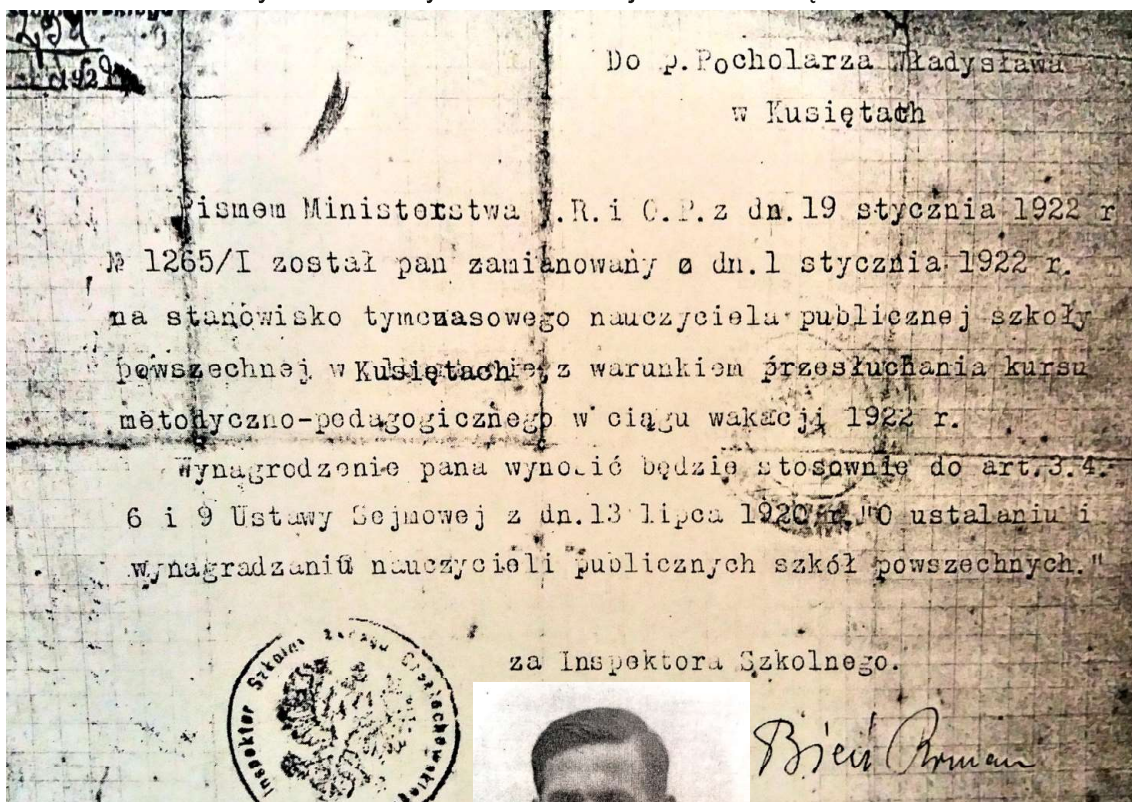 294
Do p.Pocholarza Władysława
w Kusiętach
Pismem Ministerstwa W.R. i O.P. z dn.19 stycznia 1922 r
№ 1265/I został pan zamianowany z dn.1 stycznia 1922 r.
na stanowisko tymczasowego nauczyciela publicznej szkoły
powszechnej w Kusiętach z warunkiem przesłuchania kursu
metodyczno-pedagogicznego w ciągu wakacji 1922 r.
Wynagrodzenie pana wynosić będzie stosownie do art.3.4.
6 i 9 Ustawy Sejmowej z dn.13 lipca 1920 r."O ustalaniu i
wynagradzaniu nauczycieli publicznych szkół powszechnych."
za Inspektora Szkolnego.
Inspektor Szkolny
Bień Roman